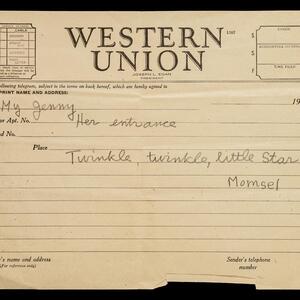 WESTERN
UNION
1207
JOSEPH L. EGAN
PRESIDENT
following telegram, subject to the terms on back hereof, which are hereby agreed to
PRINT NAME AND ADDRESS:
My Jenny
19
or Apt. No.
Her entrance
d No.
Place
Twinkle, twinkle, little Star
Momsel
's name and address
(For reference only)
Sender's telephone
number